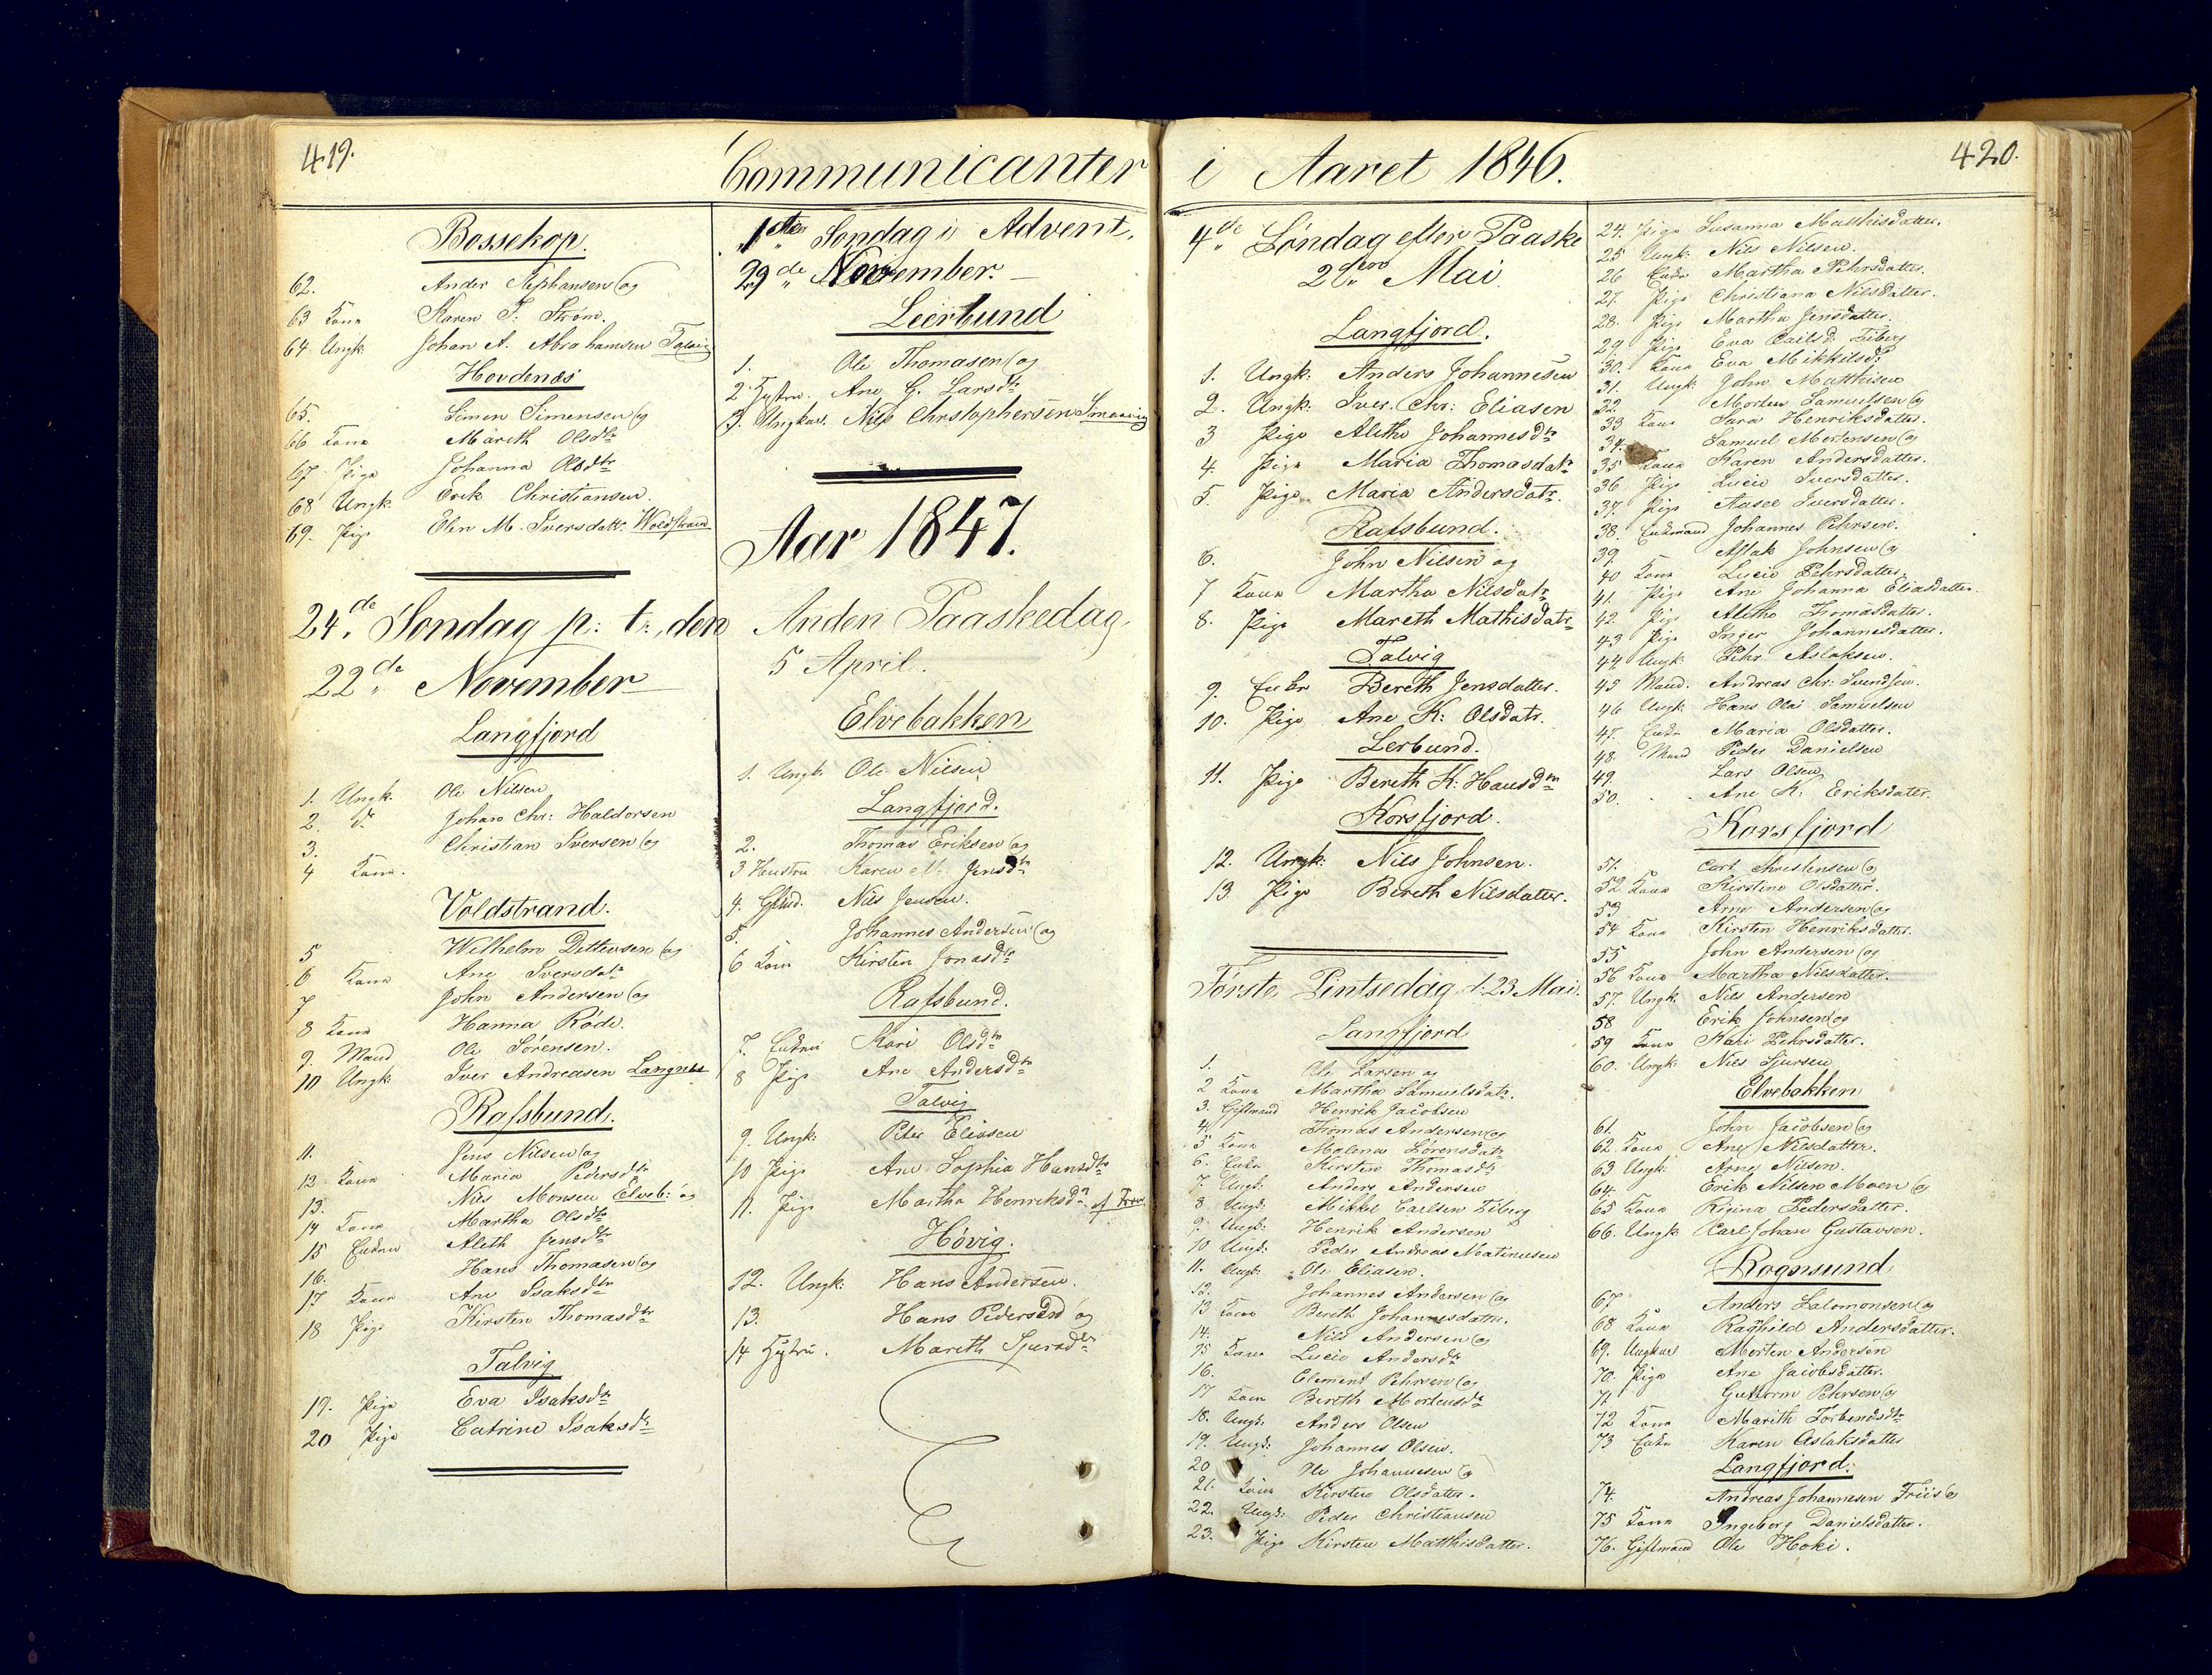 419.
Communicanter
Bossekop.
62. Ander Stephansen og
63 Kone Karen F. Strøm.
64. Ungk. Johan A. Abrahamsen Talvig
Hovdenæs
65. Simon Simensen og
66 Kone Mareth Olsdtr
67 Pige Johanna Olsdtr
68 Ungk. Erik Christiansen.
69. Pige Elen M. Iversdatr. Woldstrand
24de Søndag p: tr: den
22de November
Langfjord
1. Ungk. Ole Nilsen
2. do Johan Chr: Haldorsen
3. Christian Iversen og
4 Kone.
Voldstrand.
5 Wilhelm Ditlevsen og
6 Kone Ane Iversdatr
7 John Andersen og
8 Kone Hanna Rode.
9. Mand Ole Sørensen.
10 Ungk Iver Andreasen Langnes
Rafsbund.
11. Jens Nilsen og
12 Kone Maria Pedersdtr
13. Nils Monsen Elveb: og
14 Kone Martha Olsdtr
15 Enken Aleth Jensdtr
16. Hans Thomasen og
17 Kone Ane Isaksdtr
18 Pige Kirsten Thomasdtr
Talvig
19. Pige Eva Isaksdtr
20 Pige Catrine Isaksdtr
1ste Søndag i Advent,
29de November.
Leerbund
1. Ole Thomasen og
2 Hustru. Ane G. Larsdtr
3. Ungkarl Nils Christophersen
Aar 1847.
Anden Paaskedag.
5 April.
Elvebakken
1. Ungk Ole Nilsen
Langfjord.
2. Thomas Eriksen og
3 Hustru Karen M. Jensdtr
4. Gftmd. Nils Jensen.
5. Johannes Andersen og
6 Kone Kirsten Jonasdtr
Rafsbund.
7. Enken Kari Olsdtr
8 Pige Ane Andersdtr
Talvig
9. Ungk: Peter Eliasen
10 Pige Ane Sophia Hansdtr
11. Pige Martha Henriksdtr
Høvig.
12. Ungk: Hans Andersen.
13. Hans Pedersen og
14 Hustru. Mareth Sjursdtr
i Aaret 1846.
420.
4de Søndag efter Paaske
2den Mai.
Langfjord.
1. Ungk: Anders Johannesen
2. Ungk: Iver Chr: Eliasen
3 Pige Alethe Johannesdtr
4. Pige Maria Thomasdatr
5. Pige Maria Andersdatr.
Rafsbund.
6. John Nilsen og
7 Kone Martha Nilsdatr
8. Pige Mareth Mathisdatr
Talvig
9. Enke Bereth Jensdatter.
10. Pige Ane K: Olsdatr.
Lerbund.
11. Pige Bereth K: Hansdtr
Korsfjord.
12. Ungk: Nils Johnsen.
13 Pige Bereth Nilsdatter.
Første Pintsedag d: 23 Mai.
Langfjord
1. Ole Larsen og
2 Kone Martha Samuelsdatr.
3. Giftmand Henrik Jacobsen
4. Thomas Andersen og
5 Kone Malena Sørensdatr
6. Enke Kirsten Thomasdtr
7. Ungk: Anders Andersen
8 Ungk: Mikkel Carlsen Fiberg
9. Ungk: Henrik Andersen
10 Ungk: Peder Andreas Matinusen
11. Ungk: Ole Eliasen.
12. Johannes Andersen og
13 Kone Bereth Johannesdatter.
14. Nils Andersen og
15 Kone Lucie Andersdtr
16. Clement Pehrsen og
17 Kone Bereth Mortensdtr
18. Ungk: Anders Olsen
19. Ungk: Johannes Olsen.
20 Ole Johannesen og
21. Kone Kirsten Olsdatter.
22. Ungk: Peder Christiansen
23. Pige Kirsten Matthisdatter.
24. Pige Susanna Matthisdatter.
25 Ungk: Nils Nilsen.
26 Enke Martha Pehrsdatter.
27. Pige Christiana Nilsdatter.
28. Pige Martha Jensdatter.
29 Pige Eva Carlsd: Fiberg
30. Kone Eva Mikkelsdtr
31. Ungk: John Matthisen
32 Morten Samuelsen og
33 Kone Sara Henriksdatter.
34. Samuel Mortensen og
35 Kone Karen Andersdatter.
36 Pige Lucie Iversdatter.
37. Pige Aasel Iversdatter.
38. Enkemand Johannes Pehrsen.
39. Aslak Johnsen og
40 Kone Lucie Pehrsdatter.
41. Pige Ane Johanna Eliasdatter.
42. Pige Alethe Thomasdatter.
43 Pige Inger Johannesdatter.
44 Ungk: Pehr Aslaksen.
45 Mand. Andreas Chr: Svendsen.
46 Ungk: Hans Olai Samuelsen
47. Enke Maria Olsdatter.
48. Mand Peder Danielsen
49. Lars Olsen
50. Ane K: Eriksdatter.
Korsfjord
51. Carl Christensen og
52 Kone Kirstine Olsdatter.
53 Arne Andersen og
54 Kone Kirsten Henriksdatter.
55 John Andersen og
56 Kone Martha Nilsdatter.
57. Ungk Nils Andersen
58 Erik Johnsen og
59 Kone Kari Pehrsdatter.
60. Ungk: Nils Sjursen
Elvebakken
61. John Jacobsen og
62 Kone Ane Nilsdatter.
63 Ungk: Arne Nilsen.
64. Erik Nilsen Moen og
65 Kone Regina Pedersdatter.
66. Ungk Carl Johan Gustavsen.
Rognsund
67 Anders Salomonsen og
68 Kone Raghild Andersdatter.
69. Ungkarl Morten Andersen
70. Pige Ane Jacobsdatter.
71 Guttorm Pehrsen og
72 Kone Marith Torbensdtr
73 Enke Karen Aslaksdatter
Langfjord.
74. Andreas Johannesen Friis og
75 Kone Ingeborg Danielsdatter.
76. Giftmand Ole Hoki.